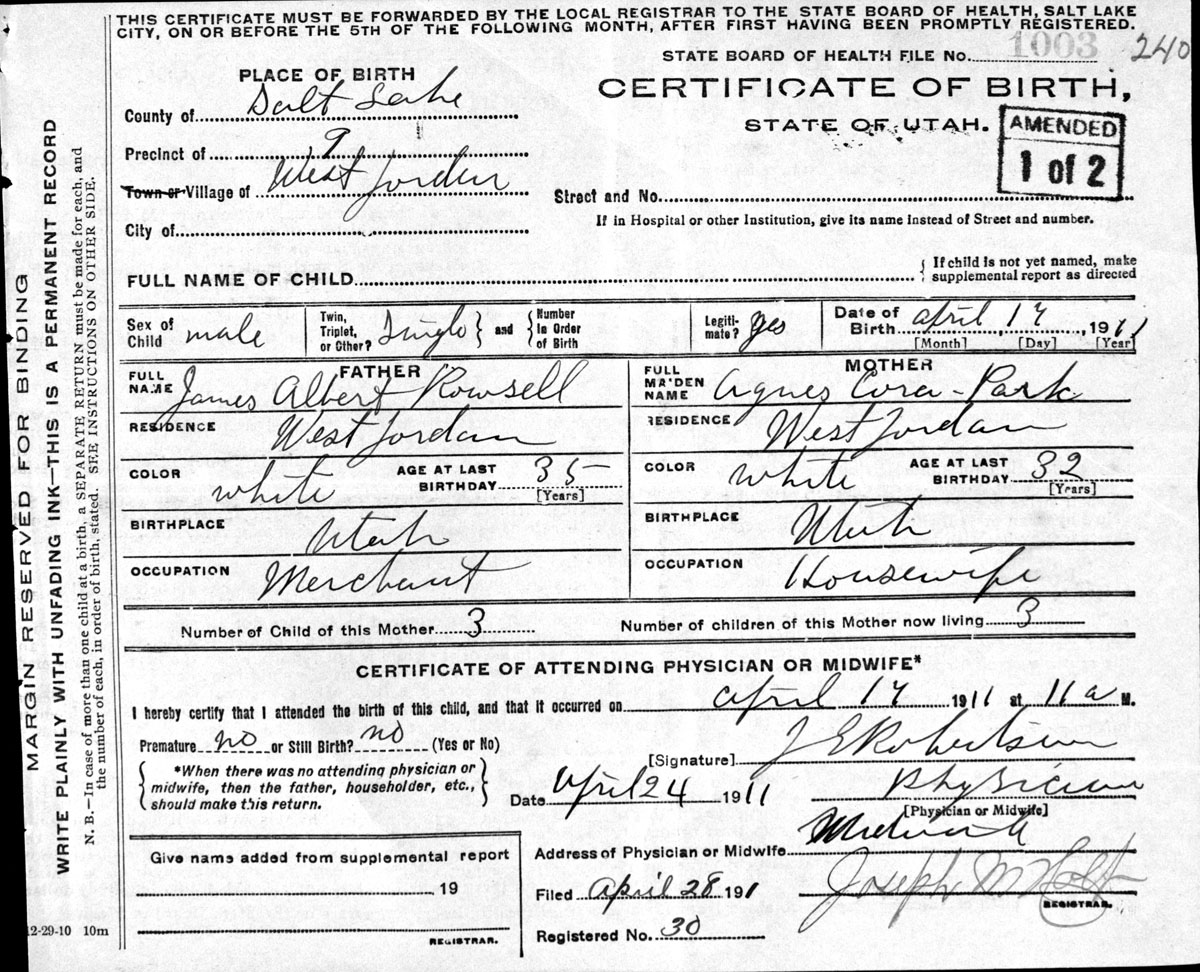 THIS CERTIFICATE MUST BE FORWARDED BY THE LOCAL REGISTRAR TO THE STATE BOARD OF HEALTH, SALT LAKE
CITY, ON OR BEFORE THE 5TH OF THE FOLLOWING MONTH, AFTER FIRST HAVING BEEN PROMPTLY REGISTERED.
STATE BOARD OF HEALTH FILE No. 1003 240
PLACE OF BIRTH
CERTIFICATE OF BIRTH,
County of Salt Lake
STATE OF UTAH.
AMENDED
1 of 2
Precinct of 9
Town or Village of West Jordan
Street and No.
If in Hospital or other Institution, give its name instead of Street and number.
City of
FULL NAME OF CHILD
{ If child is not yet named, make
supplemental report as directed
Sex of Child male Twin, Triplet, or Other? Single } and { Number in Order of Birth Legiti-mate? yes Date of Birth April 17, 1911
[Month] [Day] [Year]
FATHER MOTHER
FULL NAME James Albert Rowsell FULL MAIDEN NAME Agnes Cora Park
RESIDENCE West Jordan RESIDENCE West Jordan
COLOR white AGE AT LAST BIRTHDAY 35 [Years] COLOR white AGE AT LAST BIRTHDAY 32 [Years]
BIRTHPLACE Utah BIRTHPLACE Utah
OCCUPATION Merchant OCCUPATION Housewife
Number of Child of this Mother 3 Number of children of this Mother now living 3
CERTIFICATE OF ATTENDING PHYSICIAN OR MIDWIFE*
I hereby certify that I attended the birth of this child, and that it occurred on April 17 1911 at 11 a M.
Premature no or Still Birth? no (Yes or No)
[Signature] J E Robertson
{ *When there was no attending physician or
midwife, then the father, householder, etc.,
should make this return. }
Date April 24 1911 Physician
[Physician or Midwife]
Give name added from supplemental report
Address of Physician or Midwife
19
Filed April 28 1911 Joseph M Holt
REGISTRAR.
Registered No. 30
REGISTRAR.
12-29-10 10m
MARGIN RESERVED FOR BINDING
WRITE PLAINLY WITH UNFADING INK—THIS IS A PERMANENT RECORD
N. B.—In case of more than one child at a birth, a SEPARATE RETURN must be made for each, and
the number of each, in order of birth, stated. SEE INSTRUCTIONS ON OTHER SIDE.